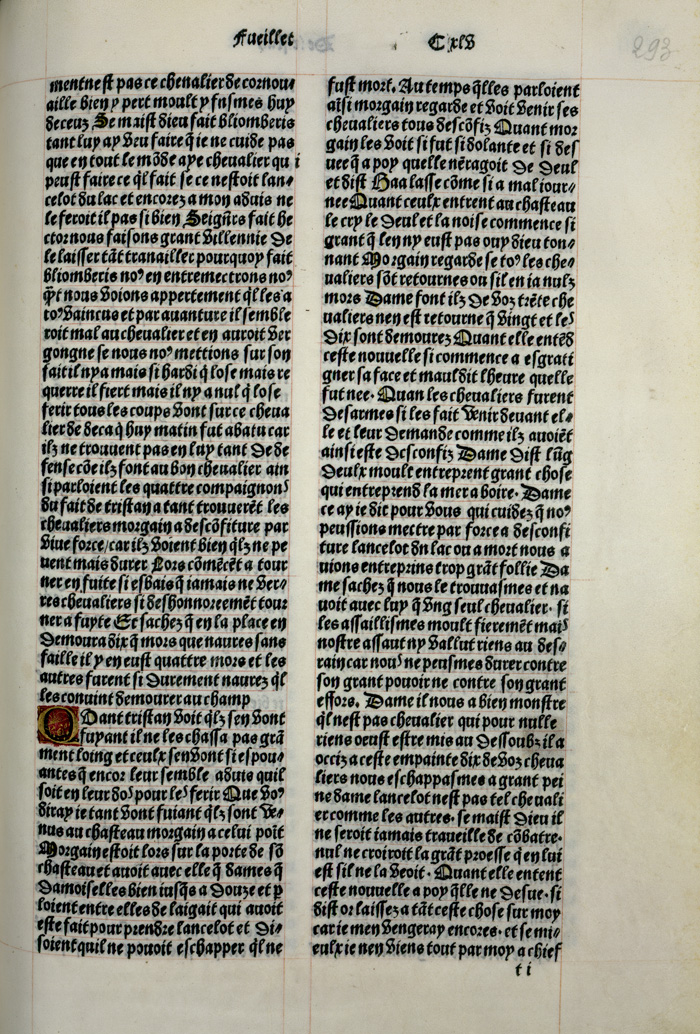 Fueillet
C xlv
293
mentnest pas ce chevalier de cornou⸗
aille bien y pert moult y fusmes huy
deceuz Se maist dieu fait bliomberis
tant luy ay veu faire q̃ ie ne cuide pas
que en tout le mõde aye chevalier qui
peust faire ce q̃l fait se ce nestoit lan⸗
celot du lac et encorez a mon aduis ne
le feroit il pas si bien Seigñrs fait he
ctor nous faisons grant villennie de
le laisser tãt trauailler pourquoy fait
bliomberis noꝰ en entremectrons noꝰ
q̃t nous voions appertement q̃l les a
toꝰ vaincus et par auanture il semble
roit mal au chevalier et en auroit ver
gongne se nous noꝰ mettions sur son
fait il ny a mais si hardi q̃ lose mais re
querre il fiert mais il ny a nul q̃ lose
ferir tous les coups vont sur ce cheua
lier de deca q̃ huy matin fut abatu car
ilz ne trouuent pas en luy tant de de
fense cõe ilz font au bon chevalier ain
si parloient les quattre compaignons
du fait de tristan a tant trouuerẽt les
chevaliers morgain a descõfiture par
viue force/car ilz voient bien q̃lz ne pe
uent mais durer Lors cõmẽcẽt a tour
ner en fuite si esbais q̃ iamais ne ver⸗
res chevaliers si deshonnoreemẽt tour
ner a fuyte Et sachez q̃ en la place en
demoura dix q̃ mors que naures sans
faille il y en eust quattre mors et les
autres furent si durement naurez q̃l
les conuint demourer au champ
Quant tristan voit q̃lz sen vont
fuyant il ne les chassa pas grã
ment loing et ceulx sen vont si espou⸗
antes q̃ encor leur semble aduis quil
soit en leur dos pour les ferir Que voꝰ
diray ie tant vont fuiant q̃lz sont ve⸗
nus au chasteau morgain a celui poĩt
Morgain estoit lors sur la porte de sõ
chasteau et auoit auec elle q̃ dames q̃
damoiselles bien iusq̃s a douze et p̱
loient entre elles de laigait qui auoit
este fait pour prendre lancelot et di⸗
soient quil ne pouoit eschapper q̃l ne
fust mort. Au temps q̃lles parloient
aĩsi morgain regarde et voit venir ses
chevaliers tous descõfiz Quant mor
gain les voit si fut si dolante et si des
uee q̃ a poy quelle nẽragoit de deul
et dist Haa lasse cõme si a mal iour⸗
nee Quant ceulx entrent au chasteau
le cry le deul et la noise commence si
grant q̃ len ny eust pas ouy dieu ton⸗
nant Morgain regarde se toꝰ les che⸗
ualiers sõt retournes ou sil en ia nulz
mors Dame font ilz de voz trẽte che
ualiers nen est retourne q̃ vingt et les
dix sont demourez Quant elle entẽd
ceste nouuelle si commence a esgrati
gner sa face et mauldit lheure quelle
fut nee. Quan les chevaliers furent
desarmes si les fait venir deuant el⸗
le et leur demande comme ilz auoiẽt
ainsi este desconfiz Dame dist lũg
deulx moult entreprent grant chose
qui entreprend la mer a boire. Dame
ce ay ie dit pour vous qui cuidez q̃ noꝰ
peussions mectre par force a desconfi
ture lancelot du lac ou a mort nous a
uions entreprins trop grãt follie Da
me sachez q̃ nous le trouuasmes et na
uoit auec luy q̃ vng seul chevalier. si
les assaillismes moult fierement mais
nostre assaut ny vallut riens au des⸗
rain car nous ne peusmes durer contre
son grant pouoir ne contre son grant
effors. Dame il nous a bien monstre
q̃l nest pas chevalier qui pour nulle
riens oeust estre mis au dessoubz il a
occiz a ceste empainte dix de voz cheua
liers nous eschappasmes a grant pei
ne dame lancelot nest pas tel chevali
er comme les autres. se maist dieu il
ne seroit iamais traueille de cõbatre.
nul ne croiroit la grãt proesse q̃ en lui
est sil ne la veoit. Quant elle entent
ceste nouuelle a poy q̃lle ne desue. si
dist or laissez a tãt ceste chose sur moy
car ie men vengeray encores. et se mi⸗
eulx ie nen viens tout par moy a chief
t i